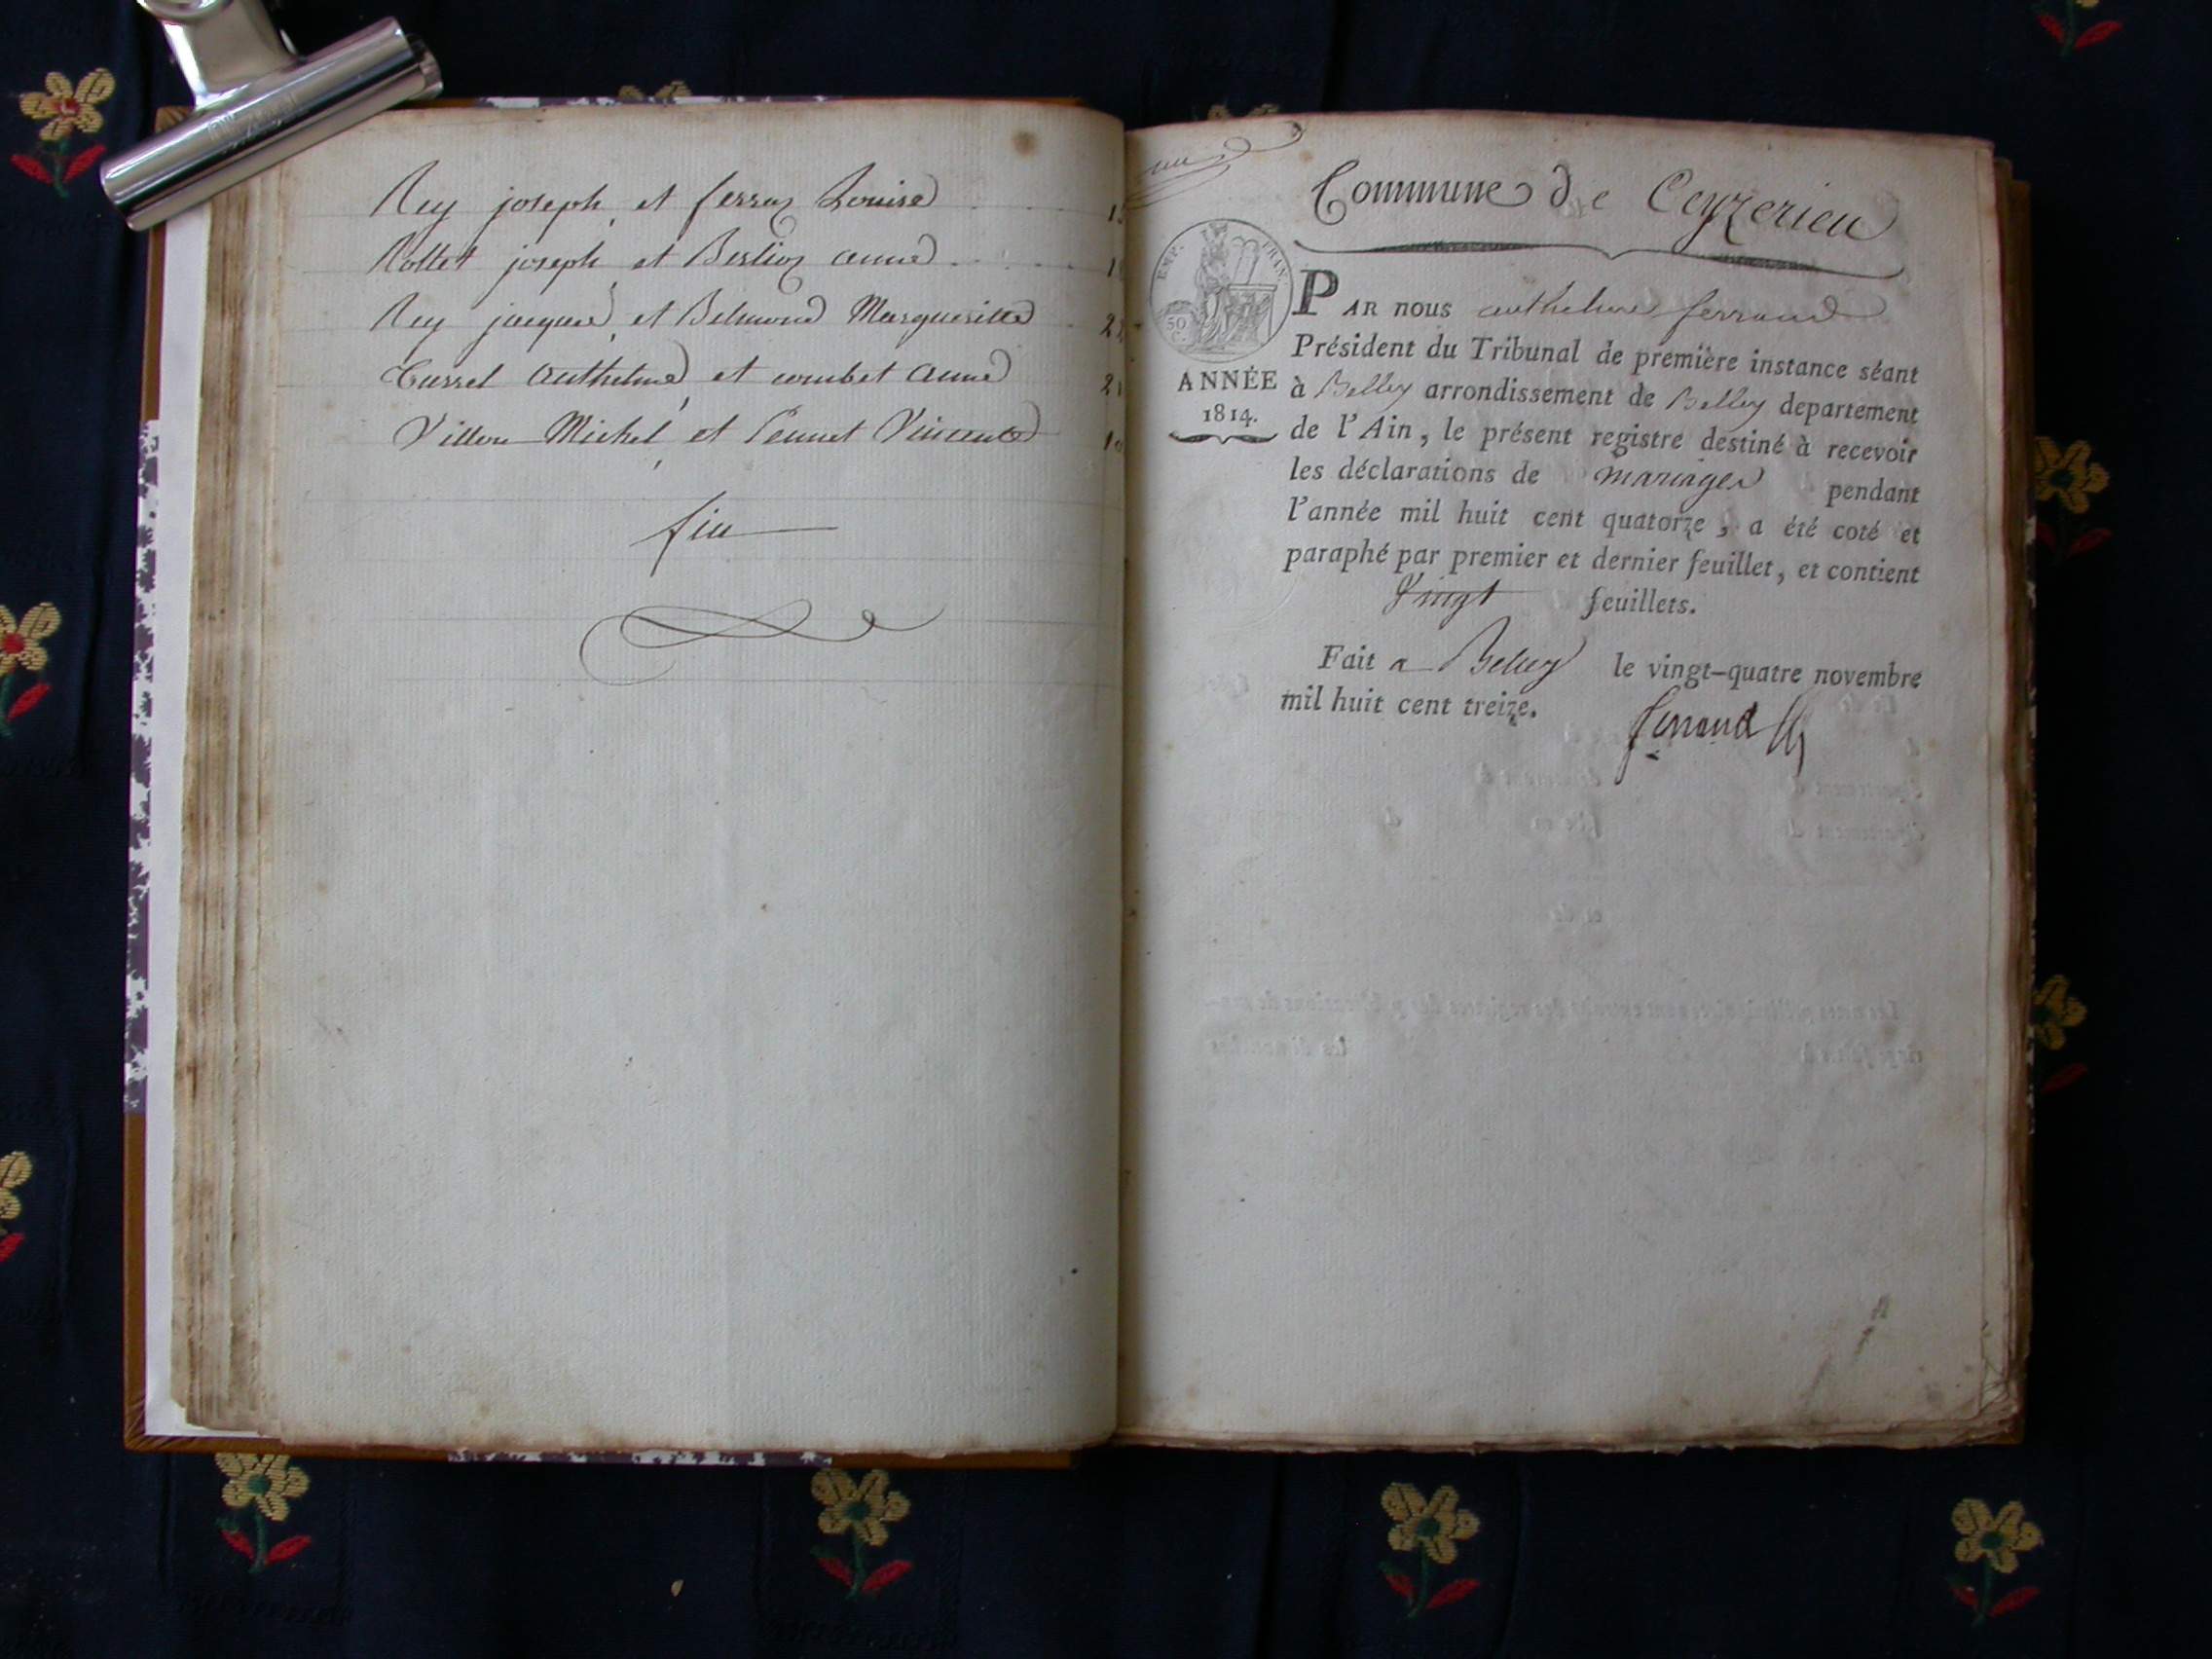 Rey joseph et ferraz Louise
Rollet joseph et Berlioz anne
Rey jacques et Belmond Marguerite
Cursel Anthelme et combet anne
Villon Michel et Pennet Vincente
fin
Commune de Ceyzerieu
EMP. FRAN.
50 C.
ANNÉE
1814.
PAR nous anthelme ferrand
Président du Tribunal de première instance séant
à Belley arrondissement de Belley departement
de l'Ain, le présent registre destiné à recevoir
les déclarations de mariages pendant
l'année mil huit cent quatorze, a été coté et
paraphé par premier et dernier feuillet, et contient
Vingt feuillets.
Fait a Belley le vingt-quatre novembre
mil huit cent treize.
ferrand